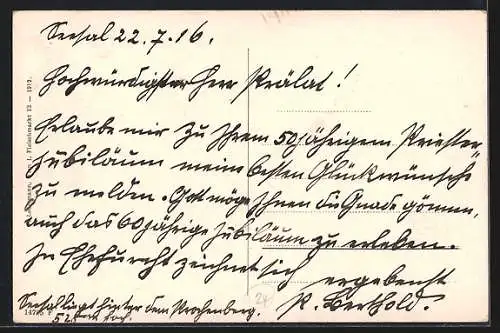 Seesal 22.7.16.
Hochwürdigster Herr Prälat!
Erlaube mir zu Ihrem 50jährigem Priester
Jubiläum meine besten Glückwünsche
zu melden. Gott möge Ihnen die Gnade gönnen,
auch das 60jährige Jubiläum zu erleben.
In Ehrfurcht zeichnet sich
ergebenst
P. Berthold.
Seesal liegt hinter dem
I., Fleischmarkt 12 — 1912.